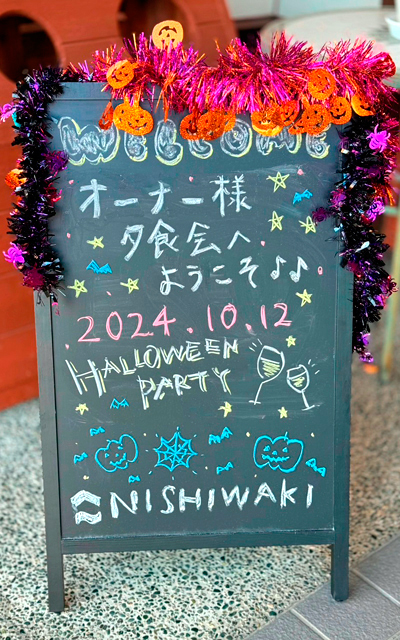 WELCOME
オーナー様
夕食会へ
ようこそ♪♪
2024.10.12
HALLOWEEN
PARTY
NISHIWAKI